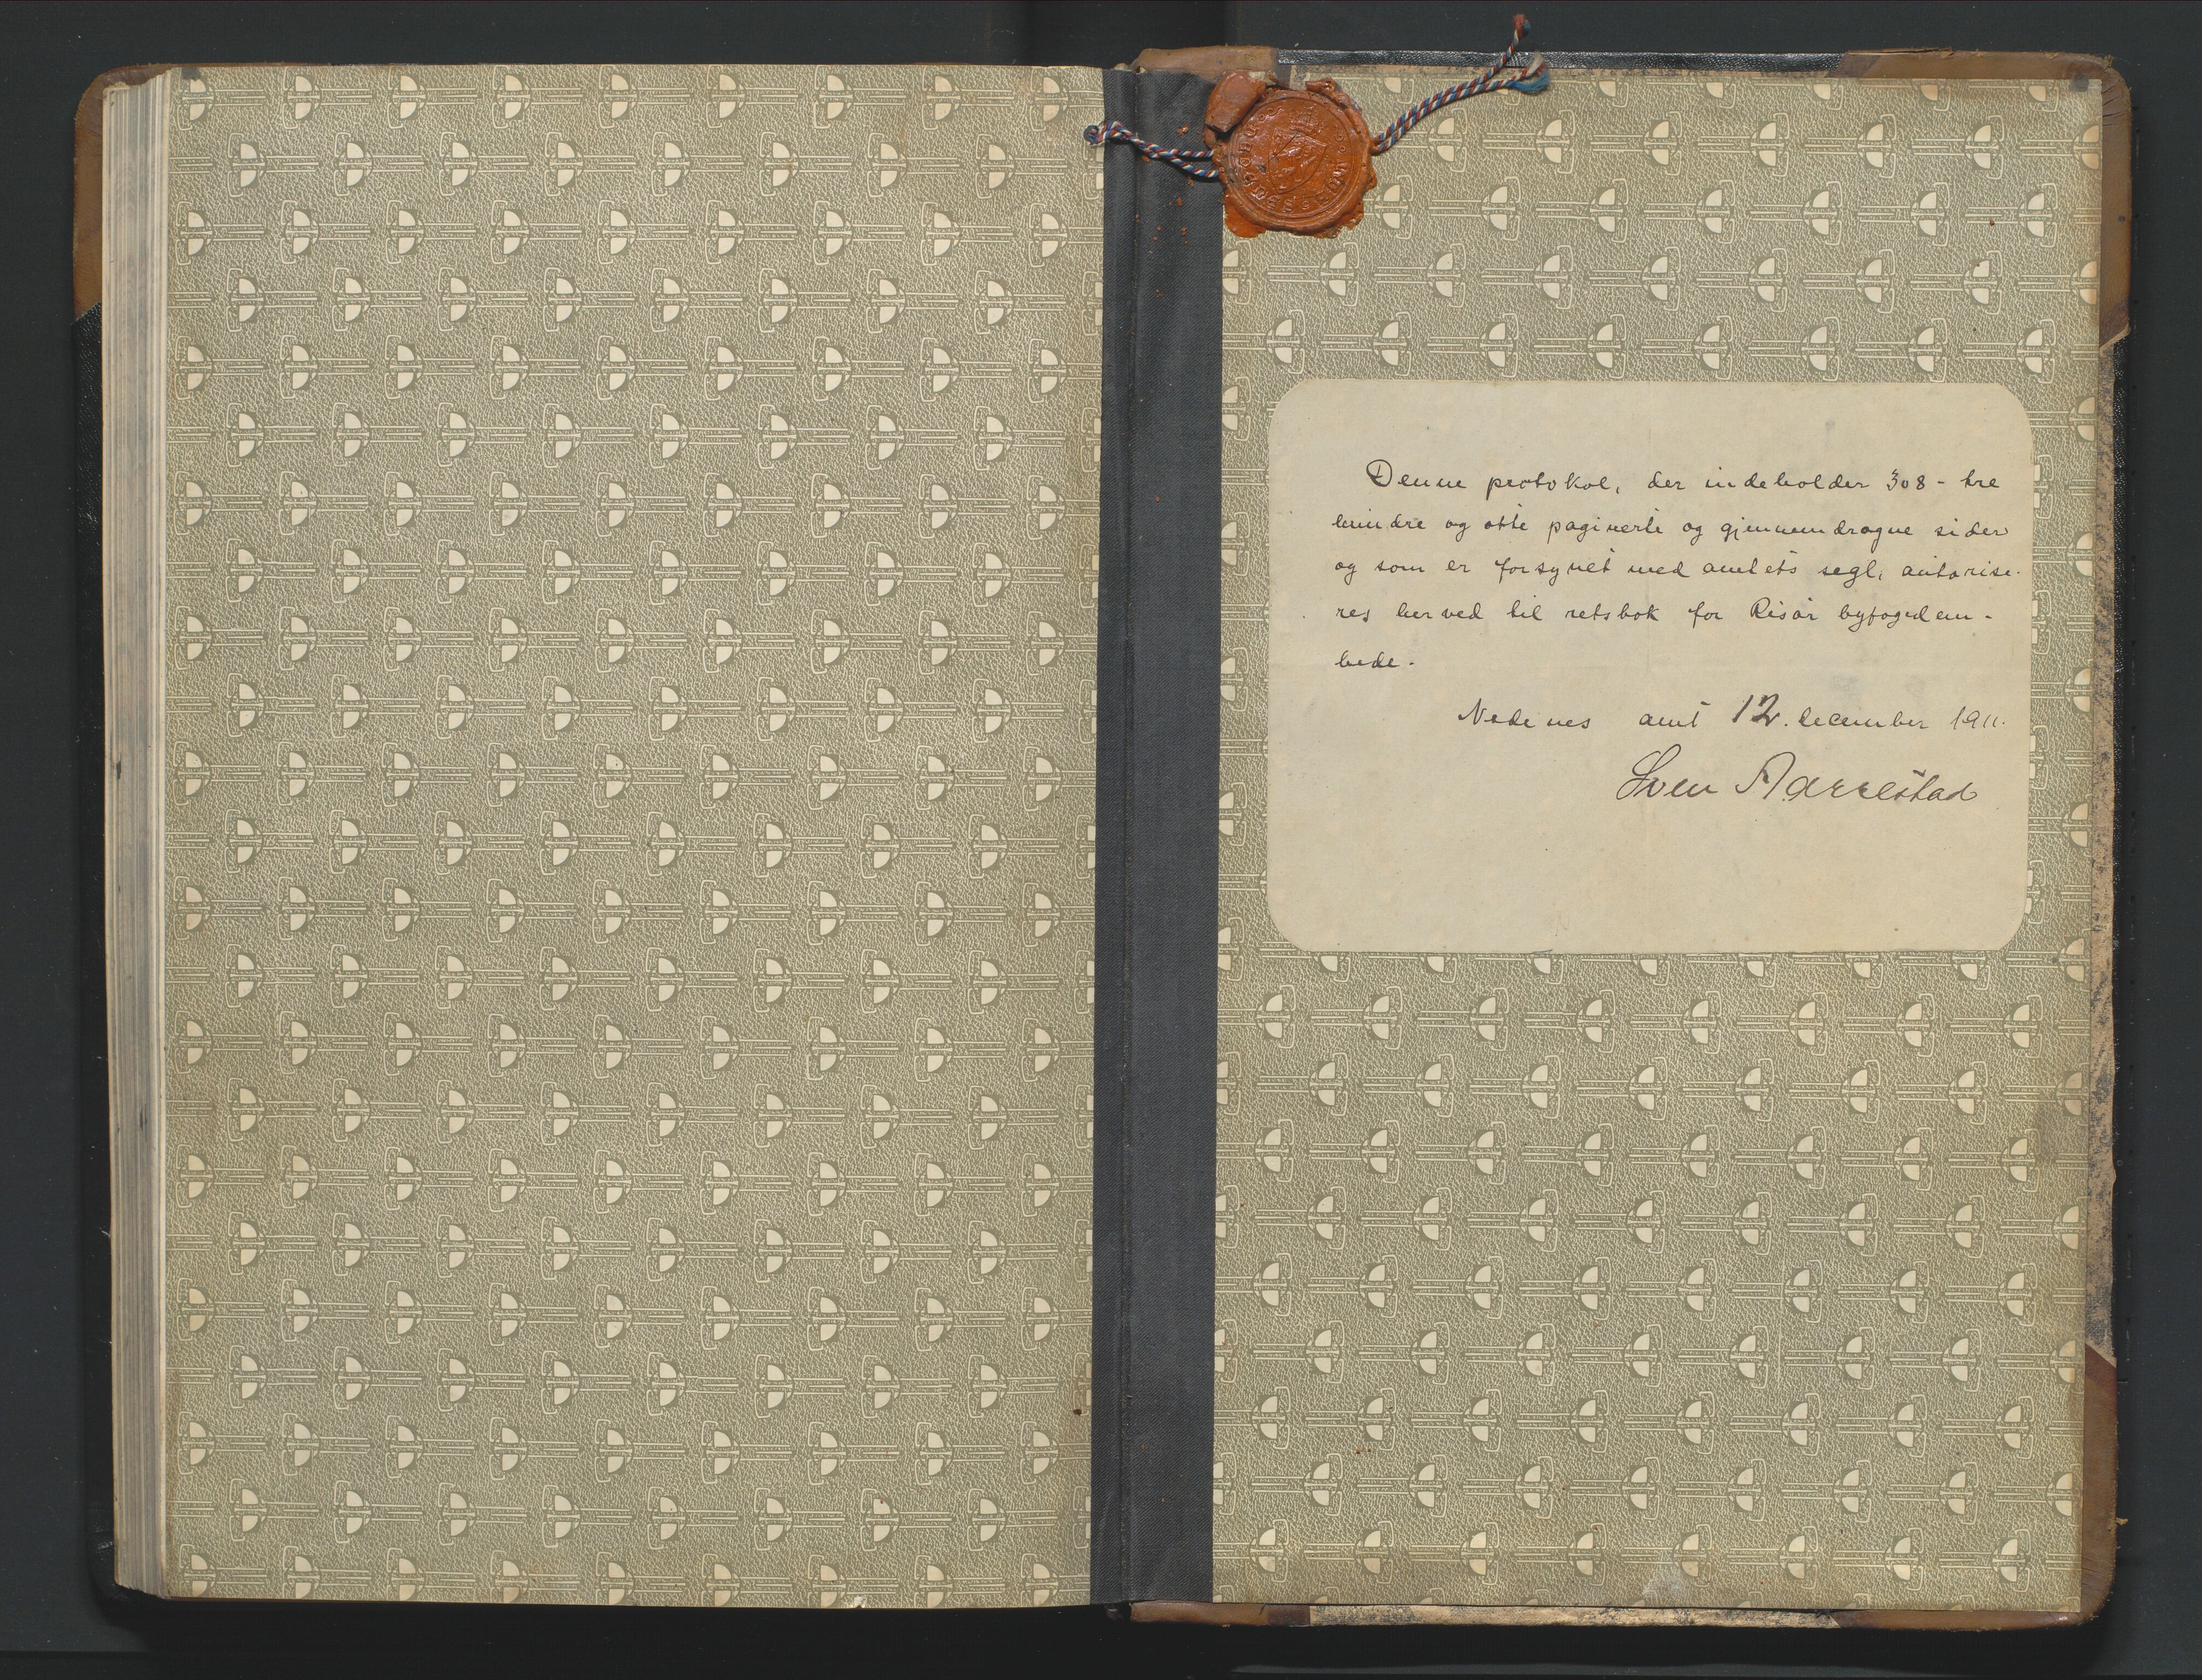 Denne protokol, der indeholder 308 - tre
hundre og otte paginerte og gjennemdragne sider
og som er forsynet med amtets segl, autorise-
res herved til retsbok for Risør byfogdem-
bede.
Nedenes amt 12. december 1911.
Sven Aarrestad